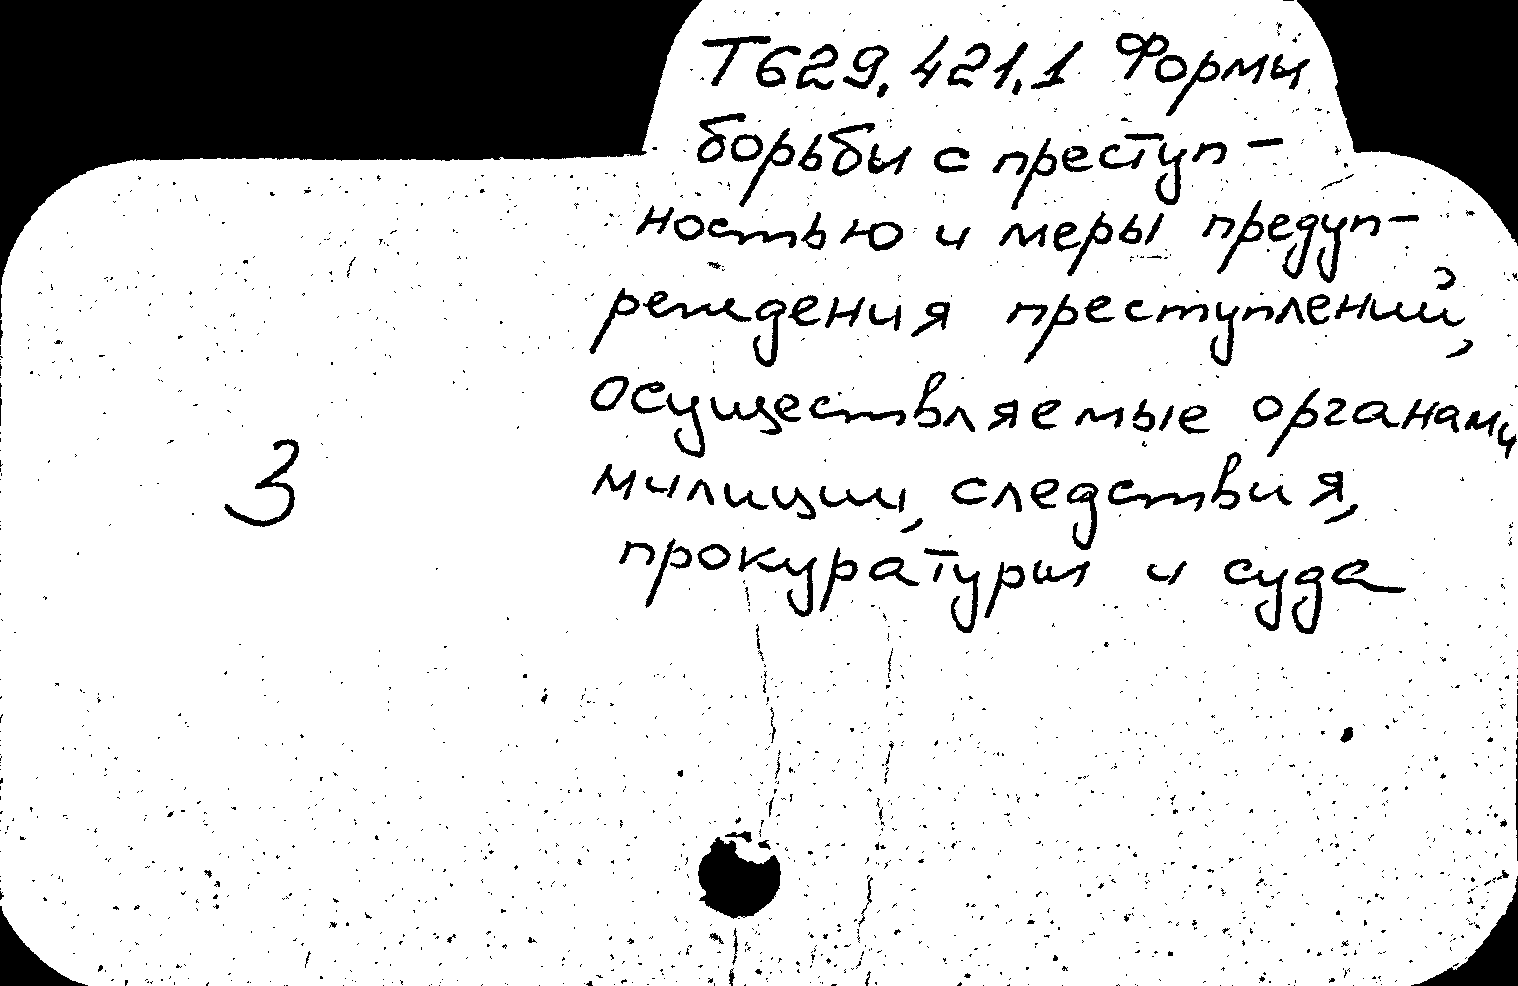 Т629.421.1 Формы
борьбы с преступ-
ностью и меры предуп-
реждения преступлений,
осуществляемые органами
милиции, следствия,
3
прокуратуры и суда